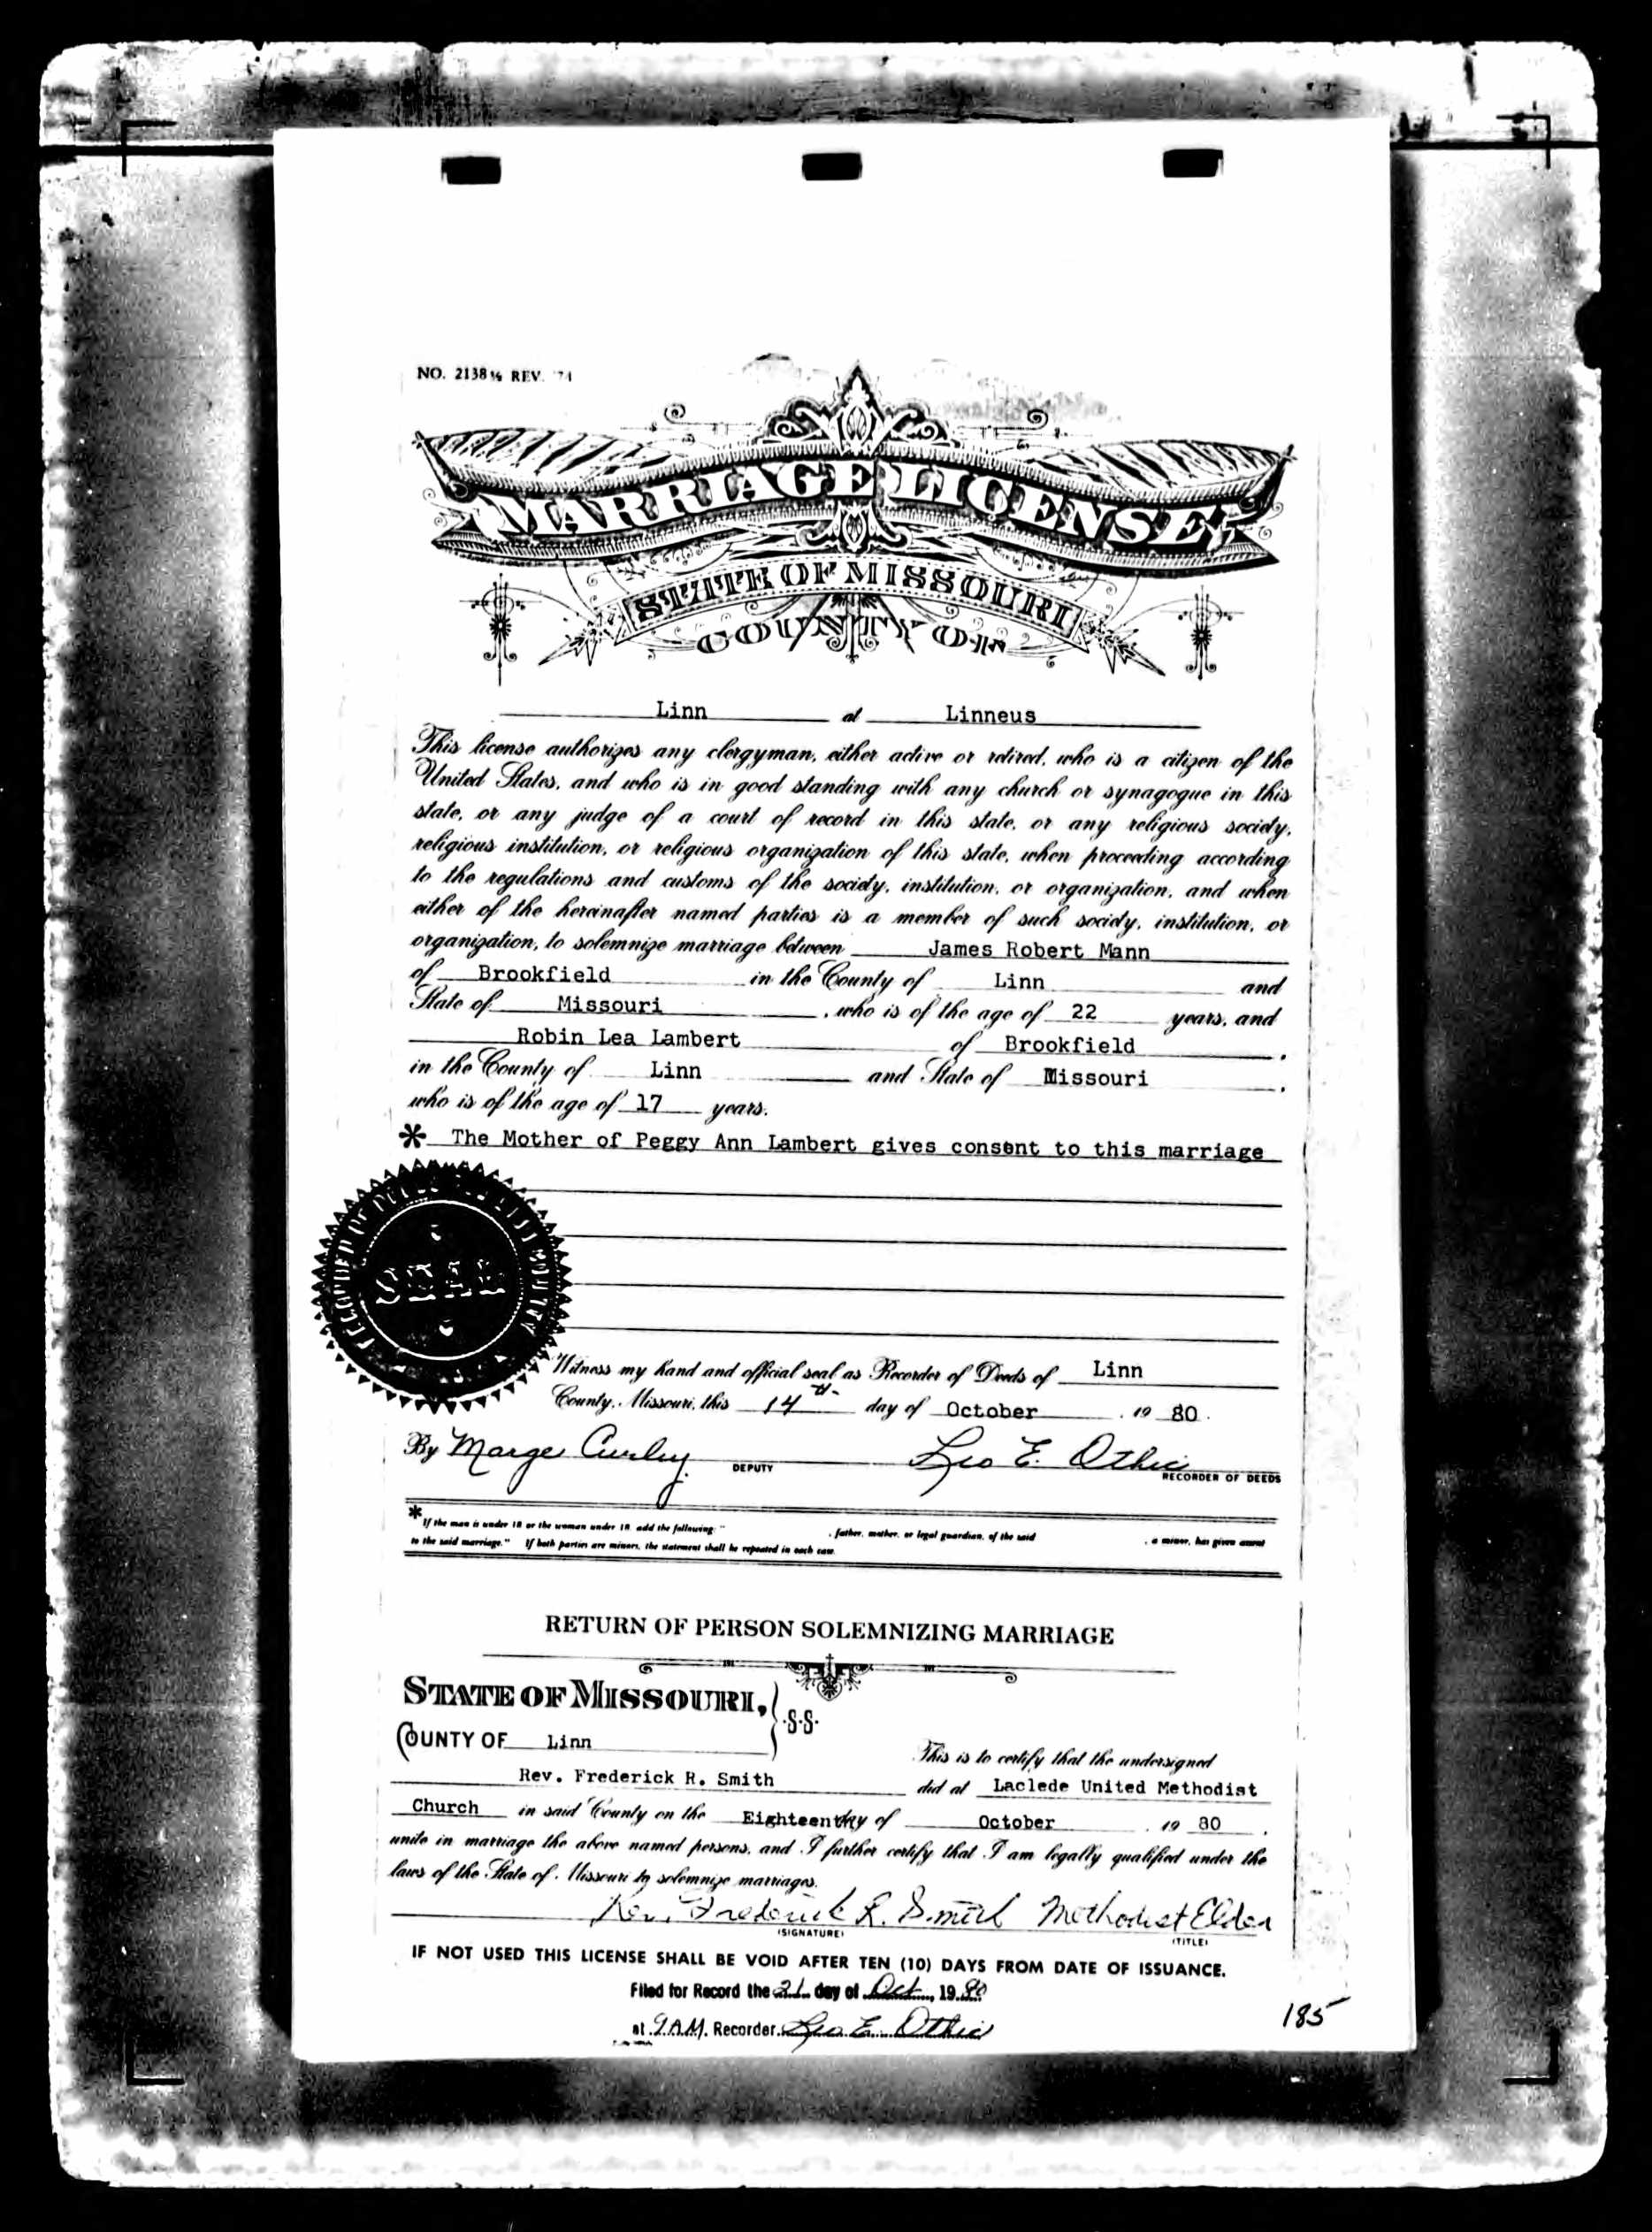 NO. 2138½ REV. '74
MARRIAGE LICENSE
STATE OF MISSOURI
COUNTY OF
Linn at Linneus
This license authorizes any clergyman, either active or retired, who is a citizen of the
United States, and who is in good standing with any church or synagogue in this
state, or any judge of a court of record in this state, or any religious society,
religious institution, or religious organization of this state, when proceeding according
to the regulations and customs of the society, institution, or organization, and when
either of the hereinafter named parties is a member of such society, institution, or
organization, to solemnize marriage between James Robert Mann
of Brookfield in the County of Linn and
State of Missouri , who is of the age of 22 years, and
Robin Lea Lambert of Brookfield ,
in the County of Linn and State of Missouri ,
who is of the age of 17 years.
* The Mother of Peggy Ann Lambert gives consent to this marriage
SEAL
Witness my hand and official seal as Recorder of Deeds of Linn
County, Missouri, this 14th day of October , 19 80 .
By Marge Curley DEPUTY Leo E. Othic RECORDER OF DEEDS
* If the man is under 18 or the woman under 18 add the following: " , father, mother, or legal guardian, of the said , a minor, has given assent
to the said marriage." If both parties are minors, the statement shall be repeated in each case.
RETURN OF PERSON SOLEMNIZING MARRIAGE
STATE OF MISSOURI, } S.S.
COUNTY OF Linn
This is to certify that the undersigned
Rev. Frederick R. Smith did at Laclede United Methodist
Church in said County on the Eighteenth day of October , 19 80 ,
unite in marriage the above named persons, and I further certify that I am legally qualified under the
laws of the State of Missouri to solemnize marriages.
Rev. Frederick R. Smith Methodist Elder
(SIGNATURE) (TITLE)
IF NOT USED THIS LICENSE SHALL BE VOID AFTER TEN (10) DAYS FROM DATE OF ISSUANCE.
Filed for Record the 21 day of Oct , 19 80
at 9 A.M. Recorder Leo E. Othic
185